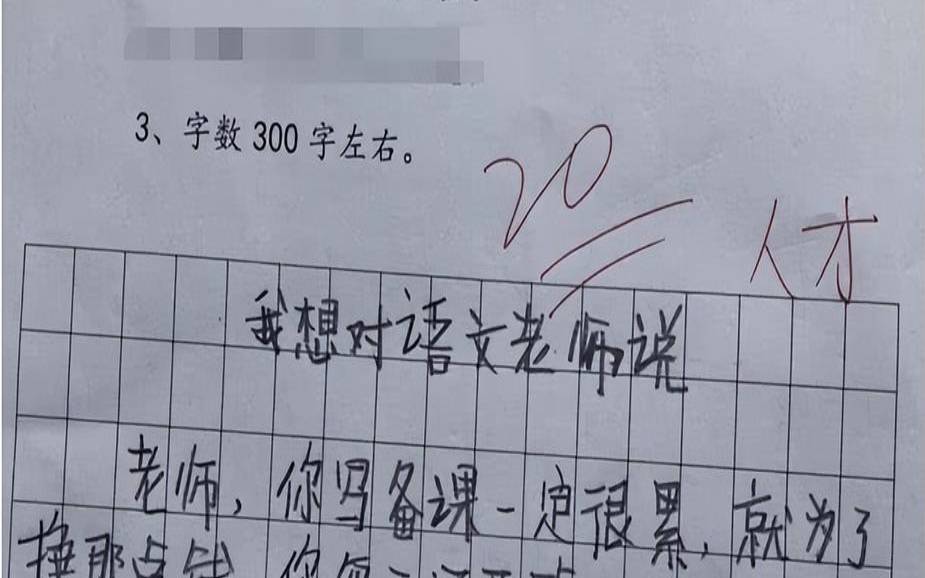 3、字数300字左右。
20
人才
我想对语文老师说
老师,你写备课一定很累,就为了